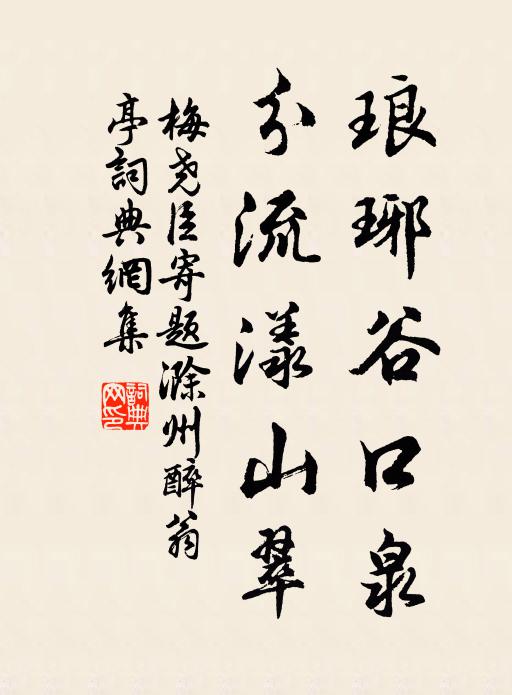 琅琊谷口泉
分流漾山翠
梅尧臣寄题滁州醉翁
亭詞典網集
詞典
网印